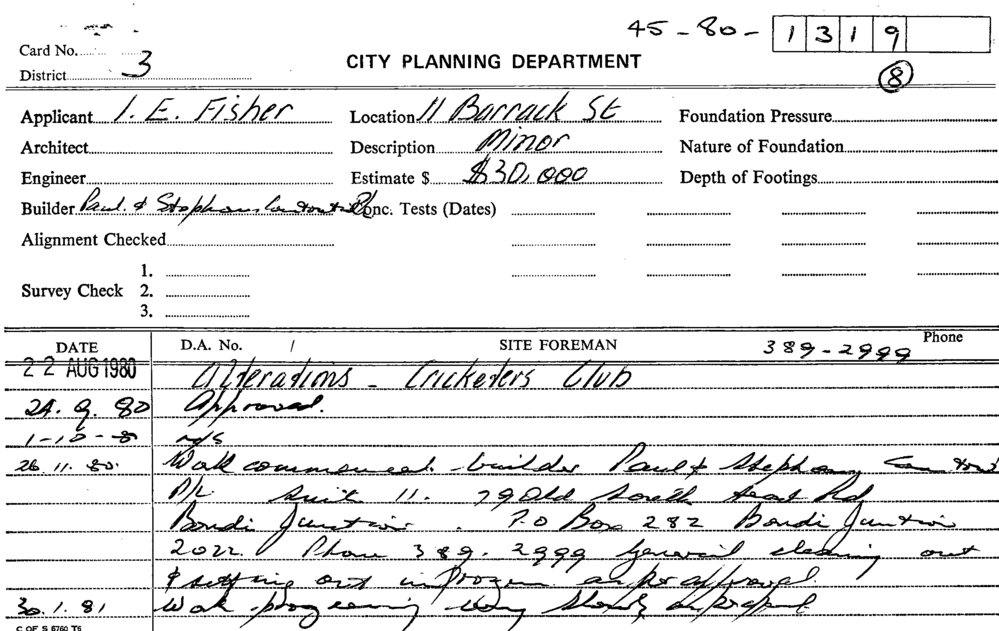 45-80-1319
Card No.
District 3
CITY PLANNING DEPARTMENT
8
Applicant I. E. Fisher
Location 11 Barrack St
Foundation Pressure
Architect
Description Minor
Nature of Foundation
Engineer
Estimate $ $30,000
Depth of Footings
Builder Paul & Stephans
Conc. Tests (Dates)
Alignment Checked
1.
Survey Check 2.
3.
DATE D.A. No. / SITE FOREMAN 389-2999 Phone
22 AUG 1980 Alterations - Cricketers Club
24.9.80 Approved.
1-10-8 n/s
26.11.80. Work commenced - builder Paul & Stephany
P/L Suit 11. 79 Old South Head Rd
Bondi Junction. P.O Box 282 Bondi Junction
2022. Phone 389-2999 General cleaning out
& setting out in progress as per approval.
30.1.81 Work progressing very slowly as proposed
C OF S 6760 T6